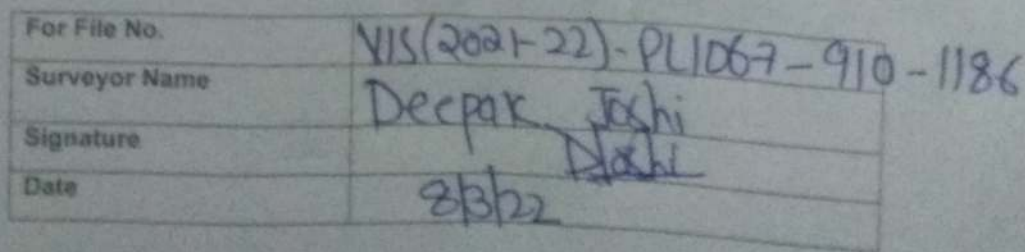 For File No. VIS(2021-22)-PL1067-910-1186
Surveyor Name Deepak Joshi
Signature DJoshi
Date 8/3/22